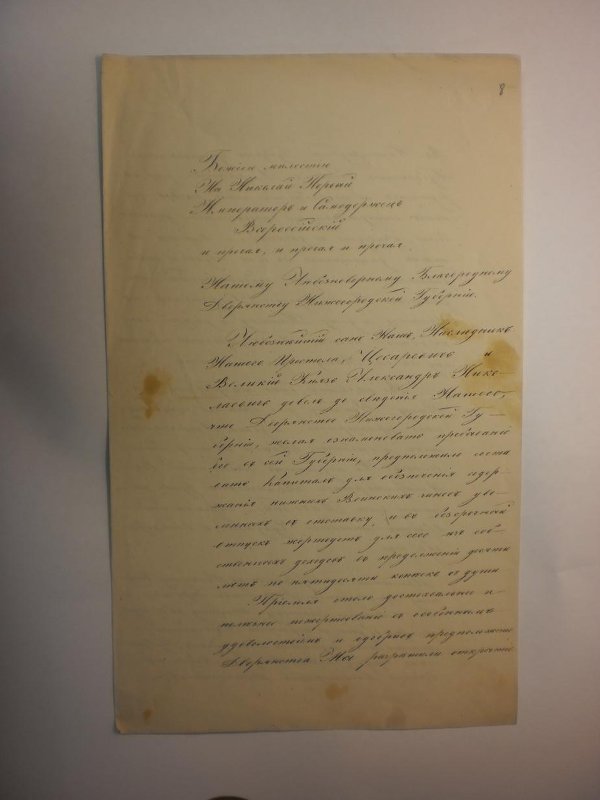 8
Божіею милостію
Мы Николай Первый
Императоръ и Самодержецъ
Всероссійскій
и прочая, и прочая и прочая
Нашему Любезноверному Благородному
Дворянству Нижегородской Губерніи.
Любезнѣйшій сынъ Нашъ, Наслѣдникъ
Нашего Престола, Цесаревичъ и
Великій Князь Александръ Нико-
лаевичъ довелъ до свѣдѣнія Нашего,
что Дворянство Нижегородской Гу-
берніи, желая ознаменовать пребываніе
Его въ сей Губерніи, предположило соста
вить капиталъ для облегченія содер-
жанія нижнихъ Воинскихъ чиновъ уво-
ленныхъ въ отставку, и въ безсрочный
отпускъ жертвуетъ для сего изъ соб-
ственныхъ доходовъ въ продолженіи десяти
лѣтъ по пятидесяти копѣекъ съ души
Пріемля столь достохвальное и
пожертвованіе съ особеннымъ
удовольствіемъ и одобривъ предположеніе
Дворянства Мы разрѣшили открытіе